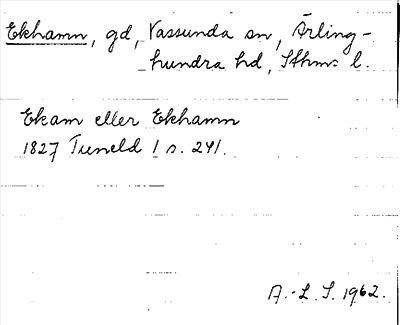 Ekhamn, gd, Vassunda sn, Ärling-
hundra hd, Sthms l.
Ekam eller Ekhamn
1827 Tuneld 1 s. 241.
A.-L. S. 1962.